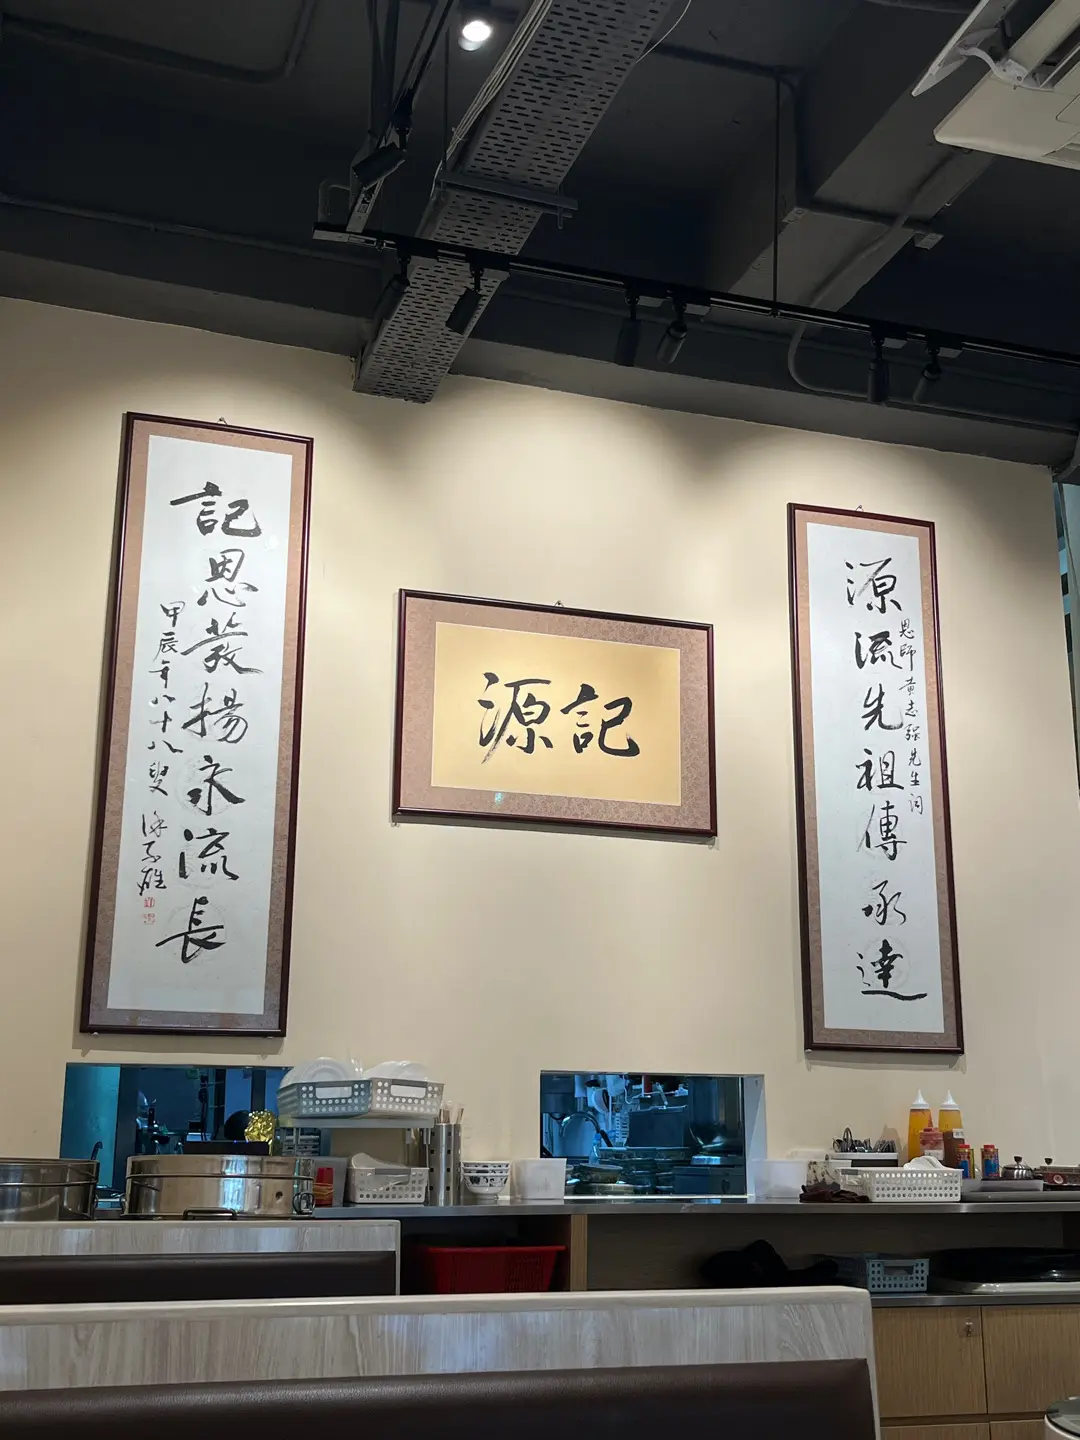 源記
源流先祖傳承達
恩師黃志强先生詞
記恩發揚永流長
甲辰年八十八叟 徐子雄